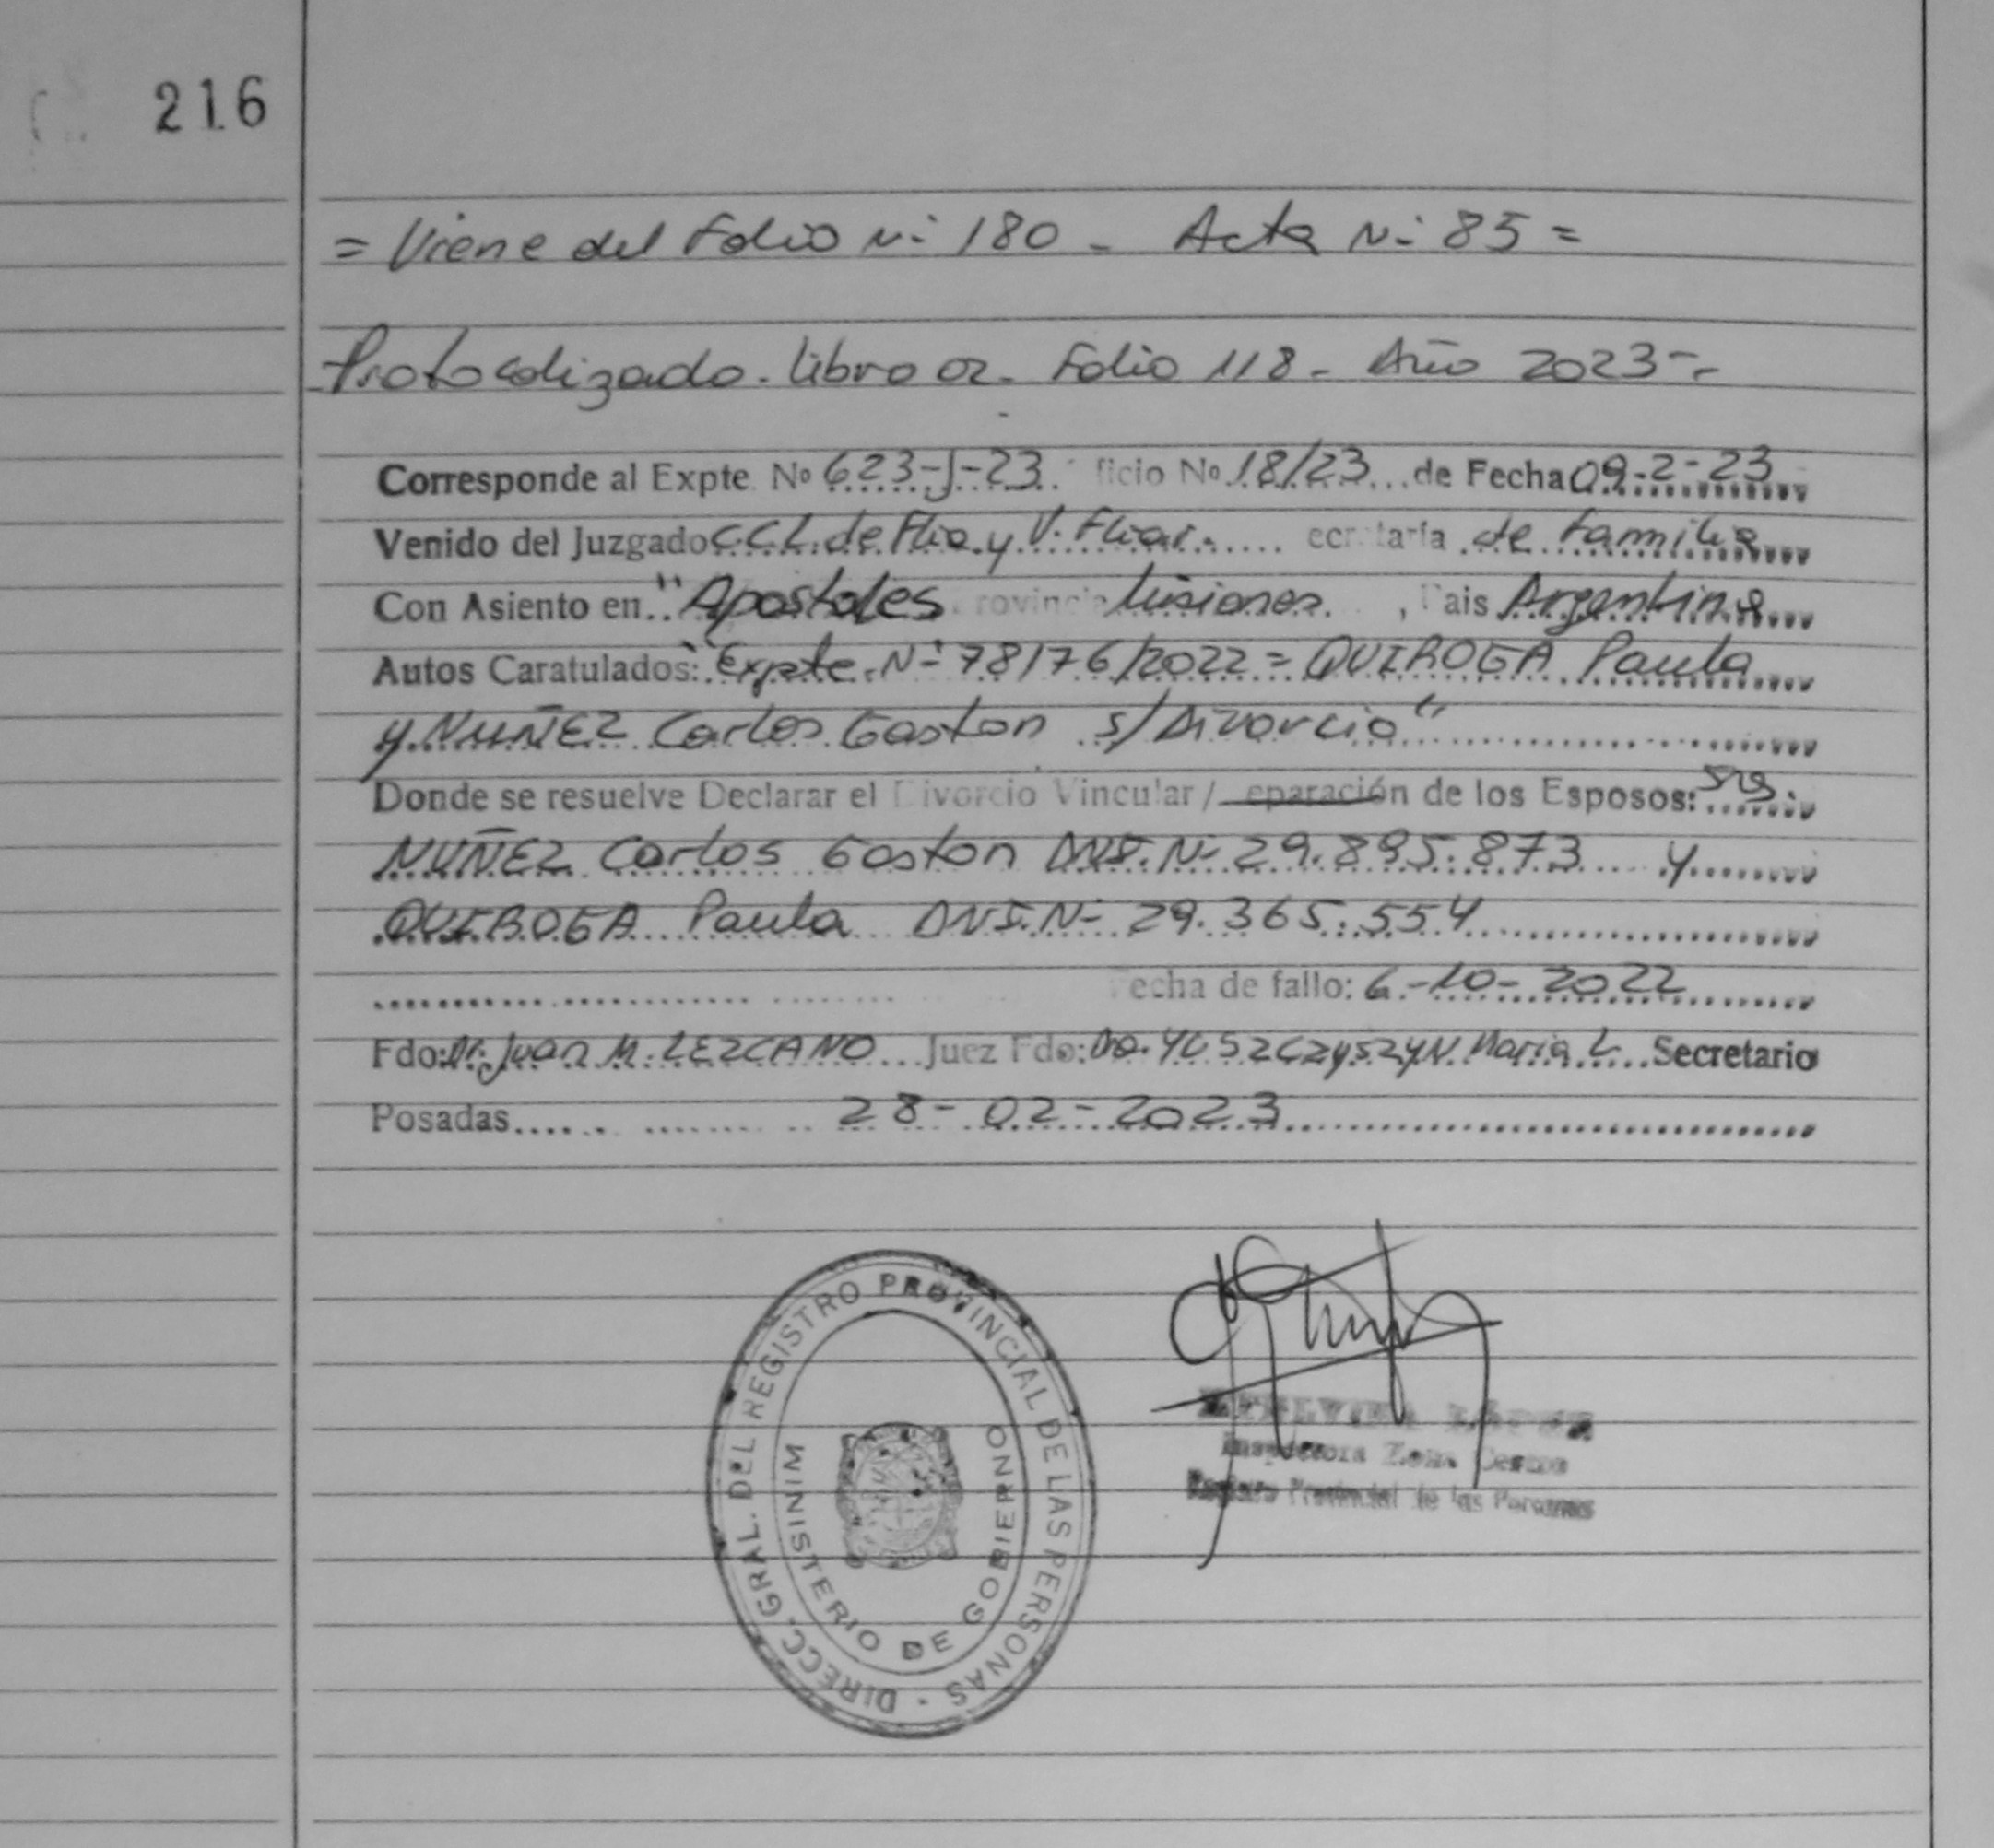 216
= Viene del Folio Nº 180 - Acta Nº 85 =
Protocolizado. libro 02. Folio 118 - Año 2023 -
Corresponde al Expte Nº 623-J-23 ficio Nº 18/23 de Fecha 09-2-23
Venido del Juzgado CCL. de Flia y V. Fliar. ecretaría de Familia
Con Asiento en "Apostoles rovincia Misiones, Pais Argentina
Autos Caratulados: "Expte. Nº 78176/2022 = QUIROGA Paula
y NUÑEZ Carlos Gaston s/ Divorcio"
Donde se resuelve Declarar el Divorcio Vincular / eparación de los Esposos: Srs.
NUÑEZ Carlos Gaston DNI. Nº 29.895.873 y
QUIROGA Paula DNI. Nº 29.365.554
echa de fallo: 6-10-2022
Fdo: Dr. Juan M. LEZCANO Juez Fdo: Dra. Maria L. Secretario
Posadas 28-02-2023
DIRECC. GRAL. DEL REGISTRO PROVINCIAL DE LAS PERSONAS -
MINISTERIO DE GOBIERNO
LÓPEZ
Inspectora Zona Centro
Registro Provincial de las Personas